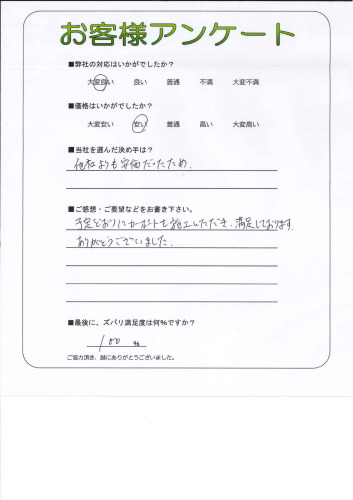 お客様アンケート
■弊社の対応はいかがでしたか?
大変良い 良い 普通 不満 大変不満
■価格はいかがでしたか?
大変安い 安い 普通 高い 大変高い
■当社を選んだ決め手は?
他社よりも安価だったため。
■ご感想・ご要望などをお書き下さい。
予定どおりにカーポートを施工いただき、満足しております
ありがとうございました。
■最後に、ズバリ満足度は何%ですか?
100 %
ご協力頂き、誠にありがとうございました。